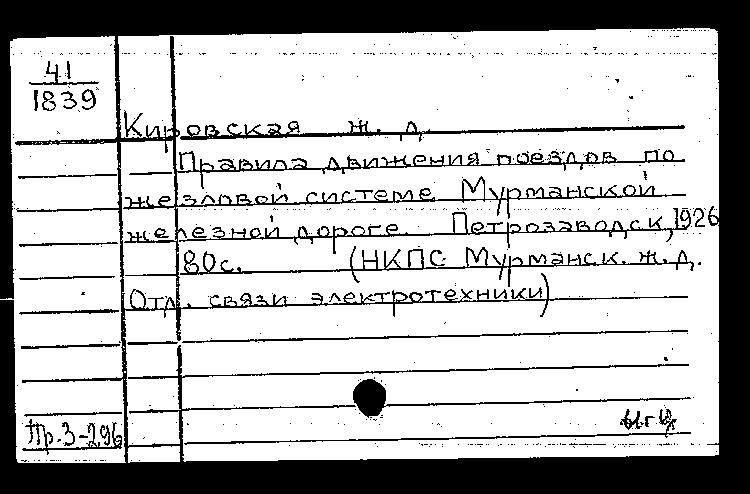 41
1839
Кировская ж. д.
Правила движения поездов по
жезловой системе Мурманской
железной дороге Петрозаводск, 1926
80с. (НКПС Мурманск. ж. д.
Отд. связи электротехники)
Пр.3-296